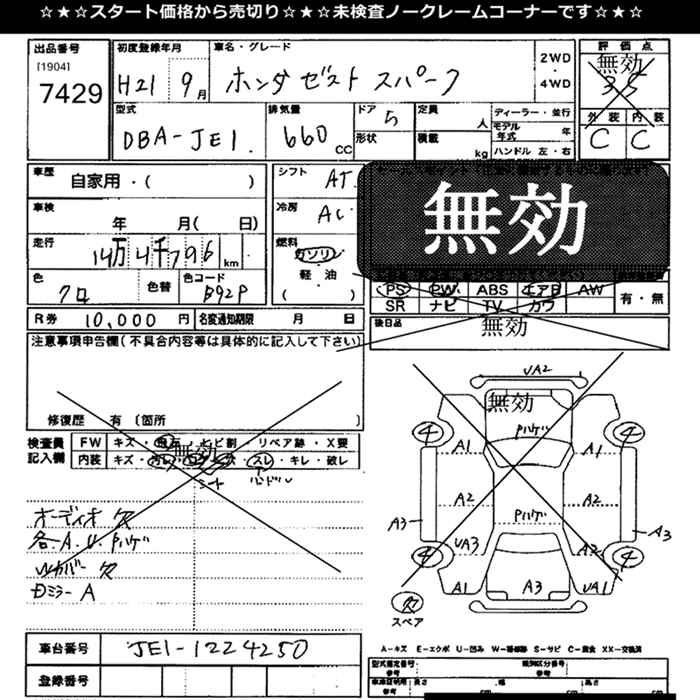 ☆★☆★スタート価格から売切り☆★☆★未検査ノークレームコーナーです☆★☆★
出品番号
[1904]
7429
初度登録年月
H21 9月
車名・グレード
ホンダ ゼスト スパーク
2WD
・
4WD
評価点
無効
3.5
外装 内装
C C
型式
DBA-JE1.
排気量
660 CC
ドア 5
形状
定員 人
積載 kg
ディーラー・並行
モデル年式 年
ハンドル 左・右
車歴 自家用・( )
車検 年 月( 日)
走行 14万4千796 km
色 クロ
色替
色コード B92P
シフト AT.
冷房 AC
燃料 ガソリン
軽・油
( )
無効
PS PW ABS エアB AW
SR ナビ TV カワ
有・無
R券 10,000 円 名変通知期限 月 日
後日品 無効
注意事項申告欄(不具合内容等は具体的に記入して下さい)
修復歴 有〔箇所
検査員記入欄
FW キズ・飛石・ヒビ割・リペア跡・X要
内装 キズ・スレ・キレ・破レ
無効
シート
ハンドル
オーディオ欠
各.A.U.Pハゲ
カバー欠
Dミラー A
UA2
無効
Pハゲ
4 A1 A1 4
A2 Pハゲ A2
A3 UA3 A2 A3
4 A1 A3 UA1 4
欠
スペア
A-キズ E-エクボ U-凹み W-補修跡 S-サビ C-腐食 XX-交換済
車台番号 JE1-1224250
登録番号
型式指定番号 参考
類別区分番号 参考
車庫証明用 参考 長さ cm 幅 cm 高さ cm